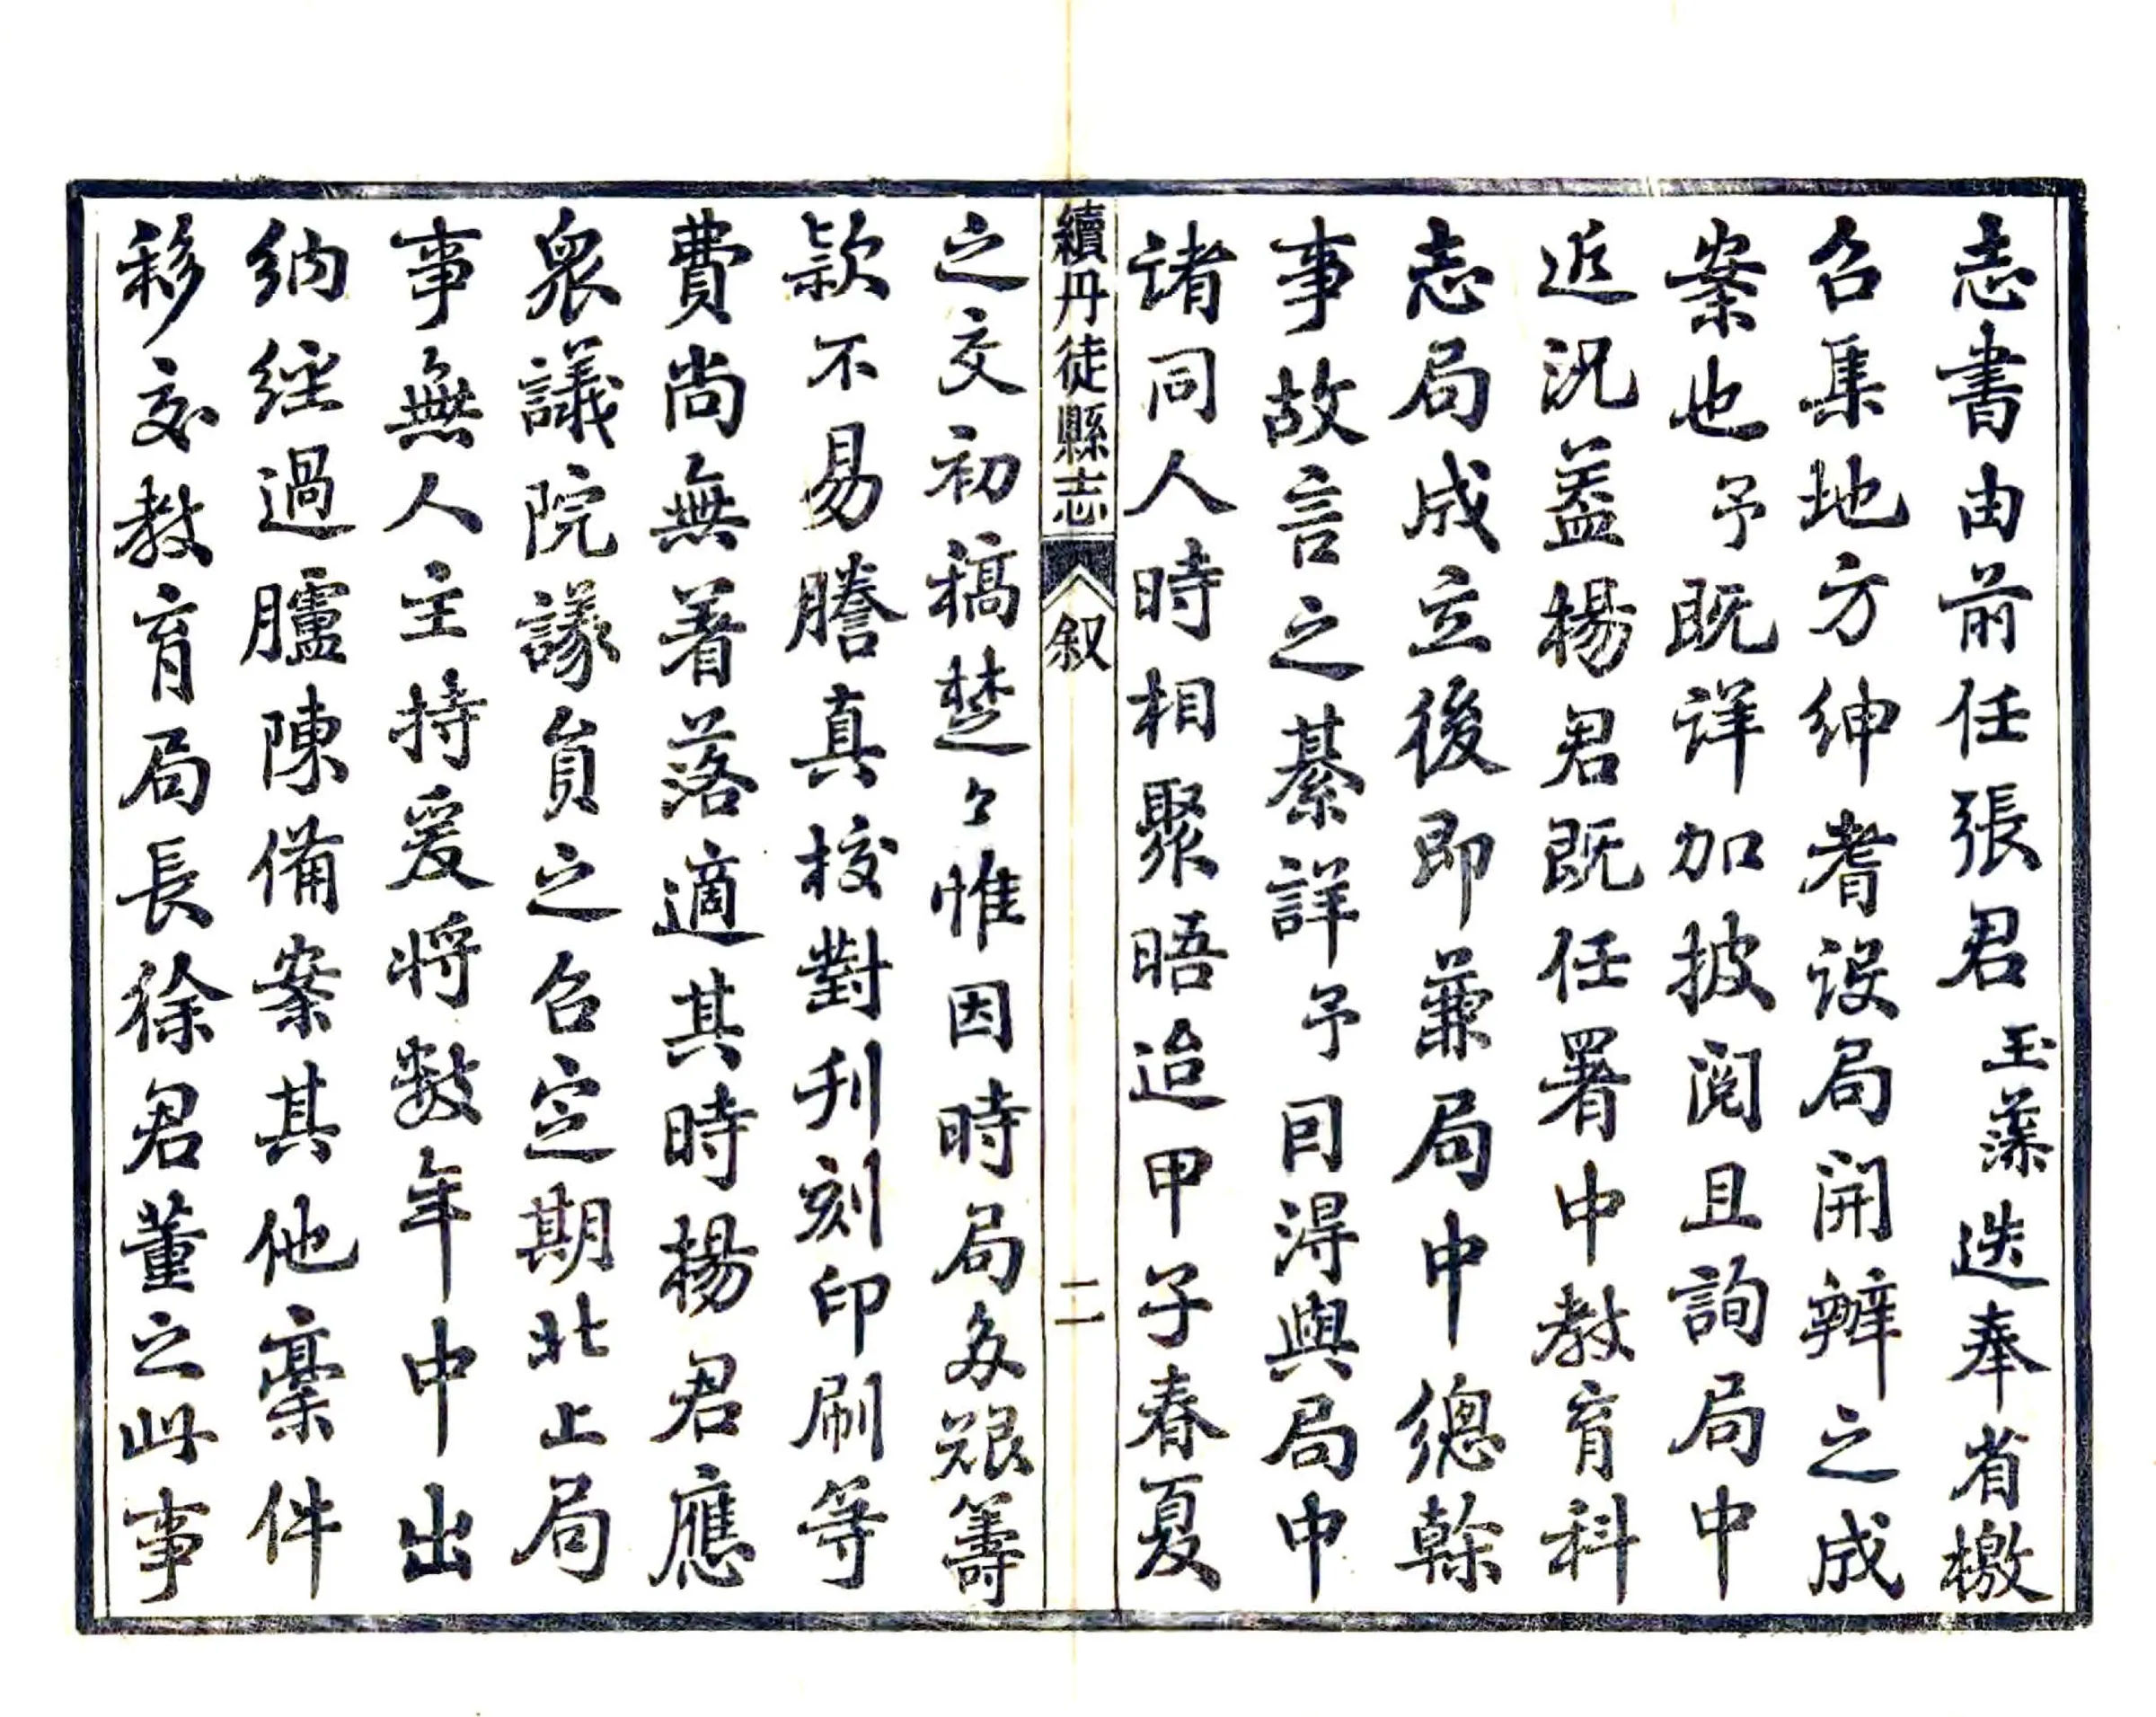 志書由前任張君玉藻迭奉省檄
召集地方紳耆設局開辦之成
案也予既详加披阅且詢局中
近況蓋楊君既任署中教育科
志局成立後即兼局中總幹
事故言之綦詳予因得與局中
諸同人時相聚晤迨甲子春夏
續丹徒縣志
叙
二
之交初稿楚々惟因時局多艱籌
款不易謄真校對刋刻印刷等
費尚無著落適其時楊君應
眾議院議員之召定期北上局
事無人主持爰将數年中出
納經過臚陳備案其他稾件
移交教育局長徐君董之此事